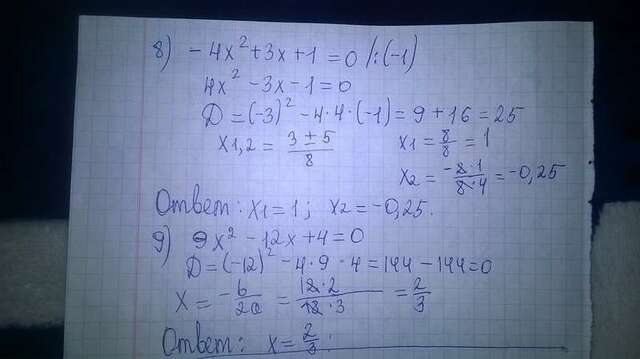 8) -4x² + 3x + 1 = 0 /:(-1)
4x² - 3x - 1 = 0
D = (-3)² - 4·4·(-1) = 9 + 16 = 25
x1,2 = (3 ± 5)/8 x1 = 8/8 = 1
x2 = -(2·1)/(8·4) = -0,25
Ответ: x1 = 1; x2 = -0,25.
9) 9x² - 12x + 4 = 0
D = (-12)² - 4·9·4 = 144 - 144 = 0
x = -b/2a = (12·2)/(12·3) = 2/3
Ответ: x = 2/3.